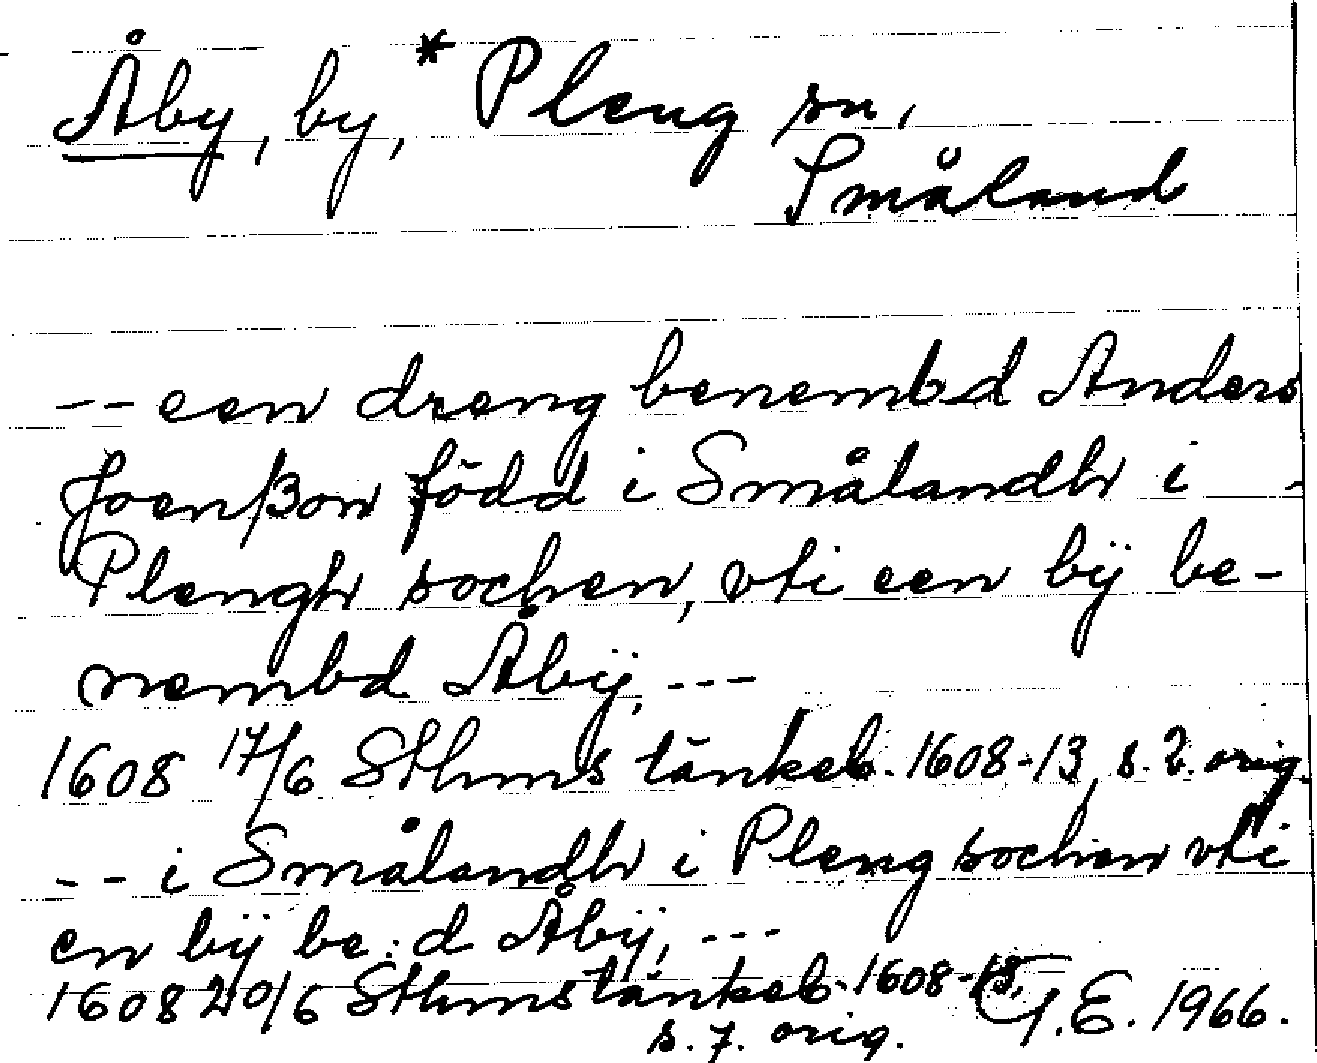 Åby, by, * Pleng sn,
Småland
-- een dreng benembd Anders
Joenßon född i Smålandh i -
Plengh sochen, vti een bÿ be-
nembd Åbÿ, ---
1608 17/6 Sthms tänkeb. 1608-13, s. 2. orig.
-- i Smålandh i Pleng sochen vti
en bÿ be:d Åbÿ, ---
1608 20/6 Sthms tänkeb. 1608-13,
s. 7. orig.
G.E. 1966.